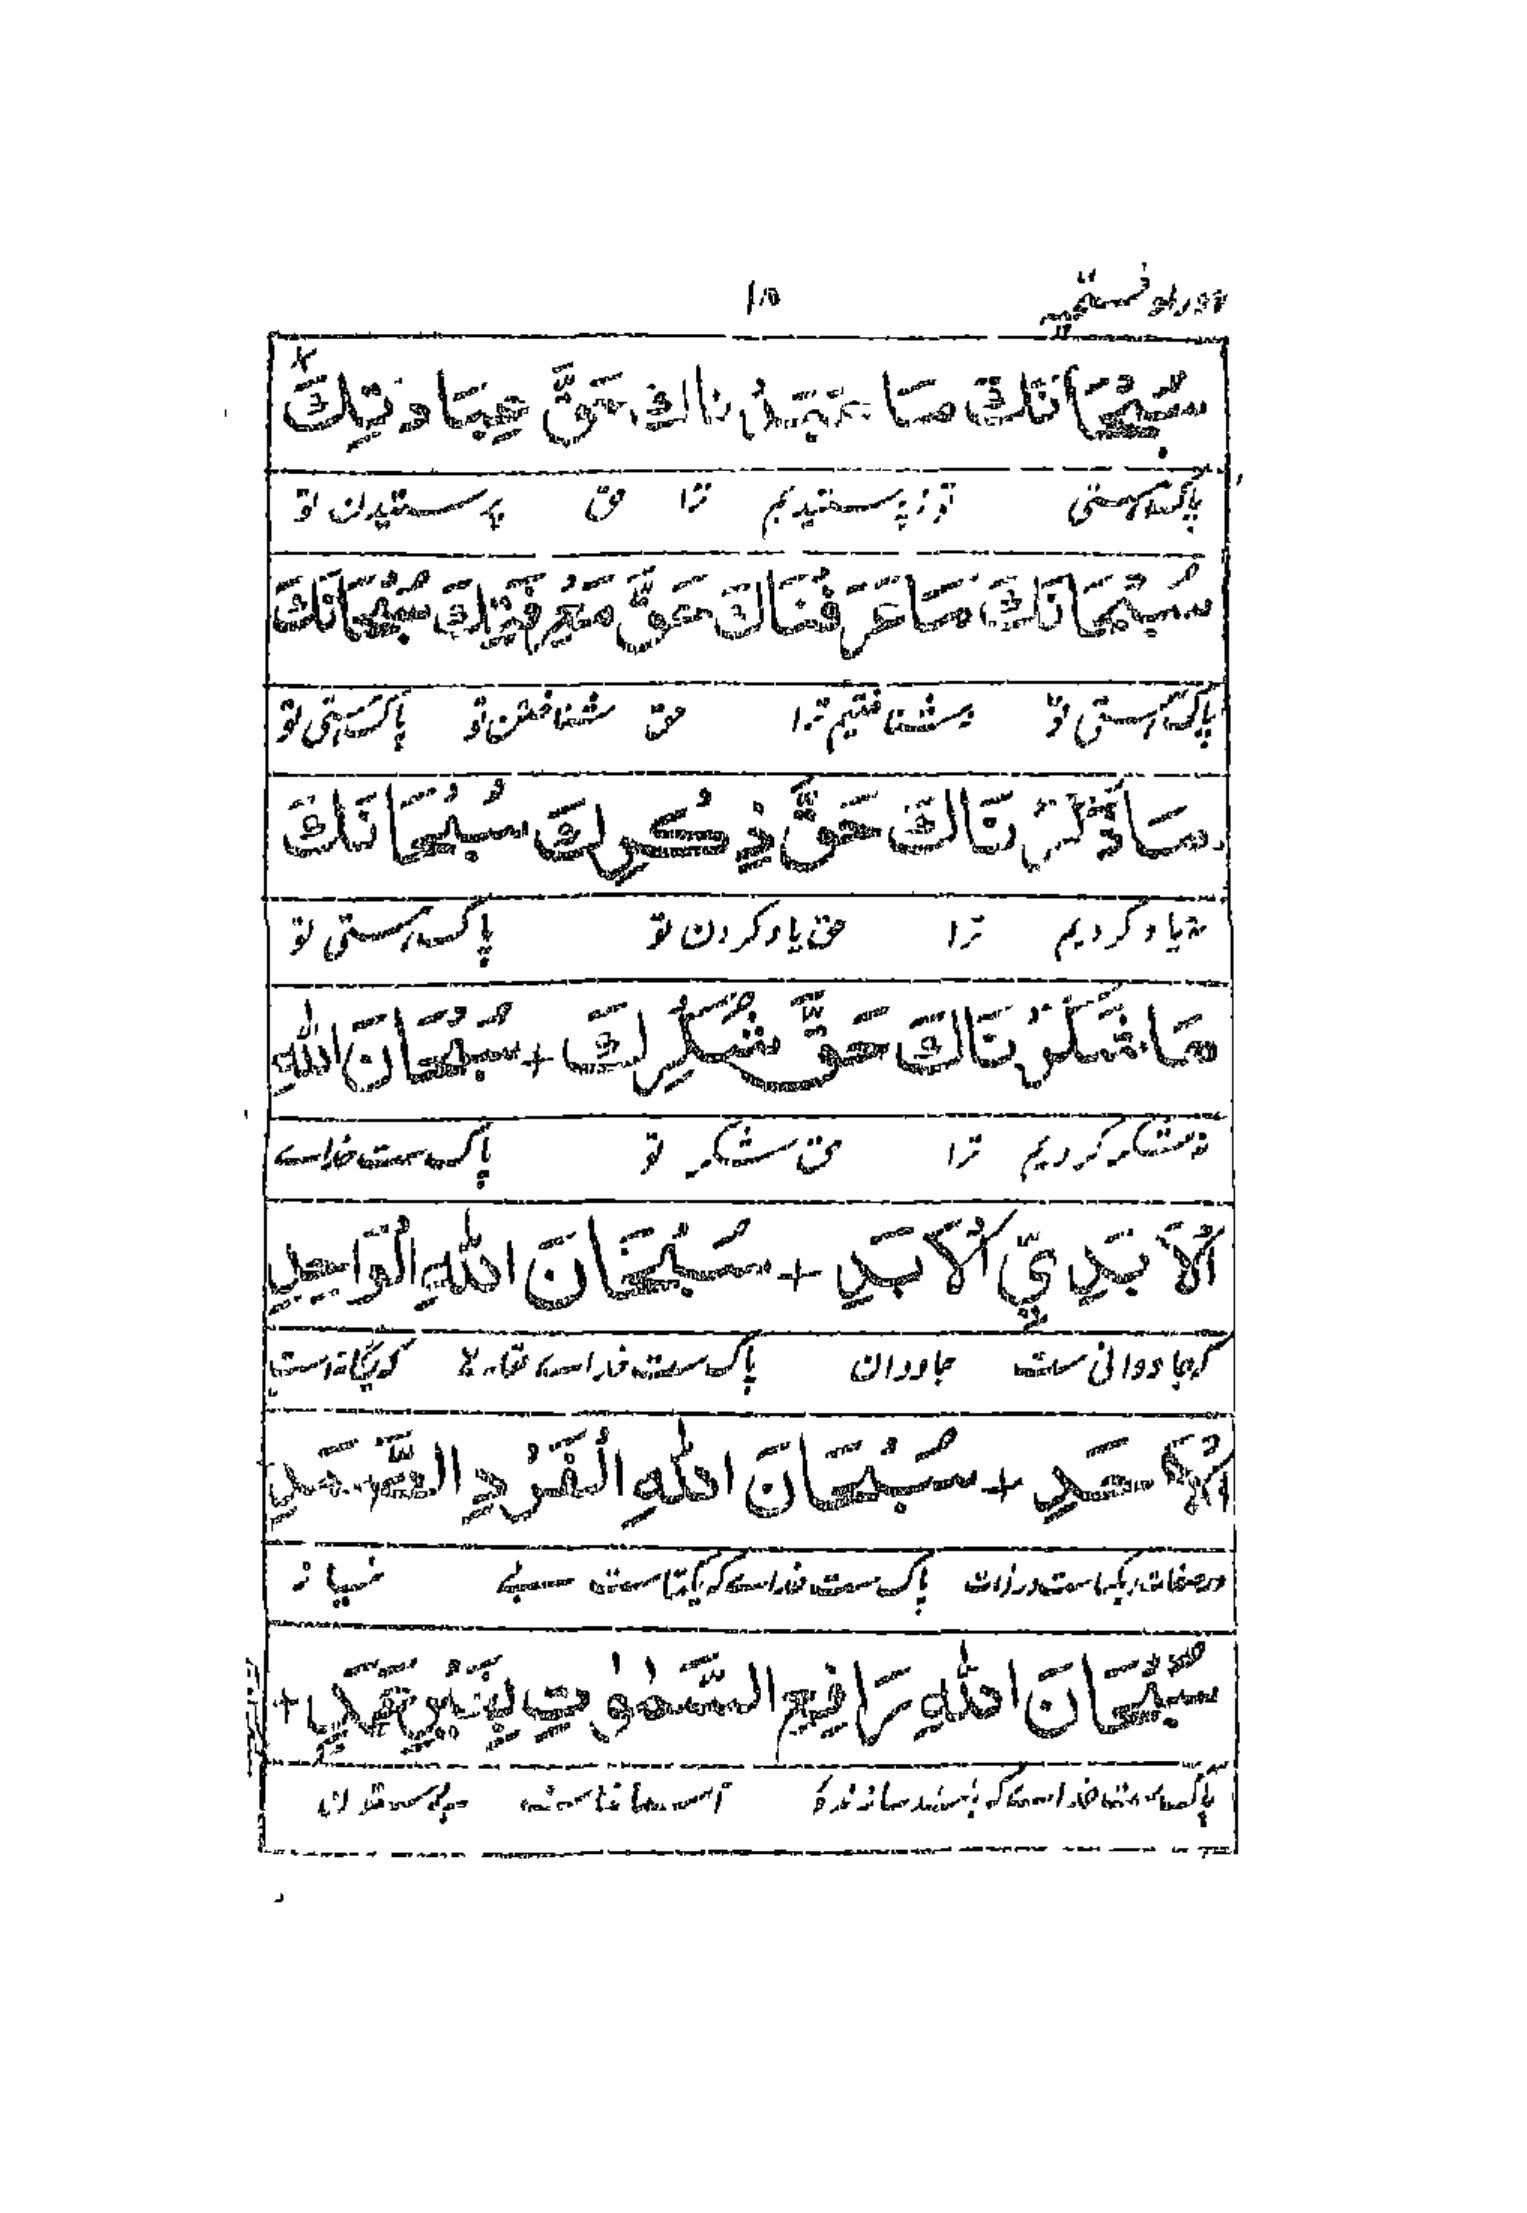 اوراد فتحیہ ۱۵
سُبْحَانَكَ مَا عَبَدْنَاكَ حَقَّ عِبَادَتِكَ
پاک ہستی تو نہ پرستیدیم ترا حق پرستیدن تو
سُبْحَانَكَ مَا عَرَفْنَاكَ حَقَّ مَعْرِفَتِكَ سُبْحَانَكَ
پاک ہستی تو نشناختیم ترا حق شناختن تو پاک ہستی تو
مَا ذَكَرْنَاكَ حَقَّ ذِكْرِكَ سُبْحَانَكَ
نہ یاد کردیم ترا حق یاد کردن تو پاک ہستی تو
مَا شَكَرْنَاكَ حَقَّ شُكْرِكَ + سُبْحَانَ اللهِ
نہ شکر کردیم ترا حق شکر تو پاک ست خداے
الْأَبَدِيِّ الْأَبَدِ + سُبْحَانَ اللهِ الْوَاحِدِ
کہ جاودانی ست جاودان پاک ست خداے کہ یگانہ است
الْأَحَدِ + سُبْحَانَ اللهِ الْفَرْدِ الصَّمَدِ
پاک ست خداے کہ یکتا ست بے نیاز
سُبْحَانَ اللهِ رَافِعِ السَّمٰوٰتِ بِغَيْرِ عَمَدٍ +
پاک ست خداے کہ بلند سازندۂ آسمانها ست بے ستون